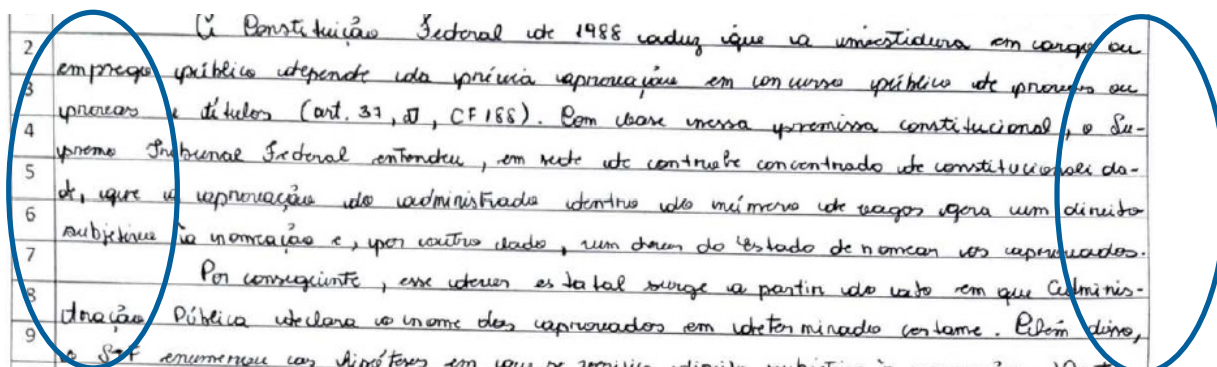 A Constituição Federal de 1988 aduz que a investidura em cargo ou
2
emprego público depende da prévia aprovação em concurso público de provas ou
3
provas e títulos (art. 37, II, CF/88). Com base nessa premissa constitucional, o Su-
4
premo Tribunal Federal entendeu, em sede de controle concentrado de constitucionalida-
5
de, que a aprovação do administrado dentro do número de vagas gera um direito
6
subjetivo à nomeação e, por outro lado, um dever do Estado de nomear os aprovados.
7
Por conseguinte, esse dever estatal surge a partir do ato em que Adminis-
8
tração Pública declara o nome dos aprovados em determinado certame. Além disso,
9
o STF enumerou as hipóteses em que se direito subjetivo à nomeação